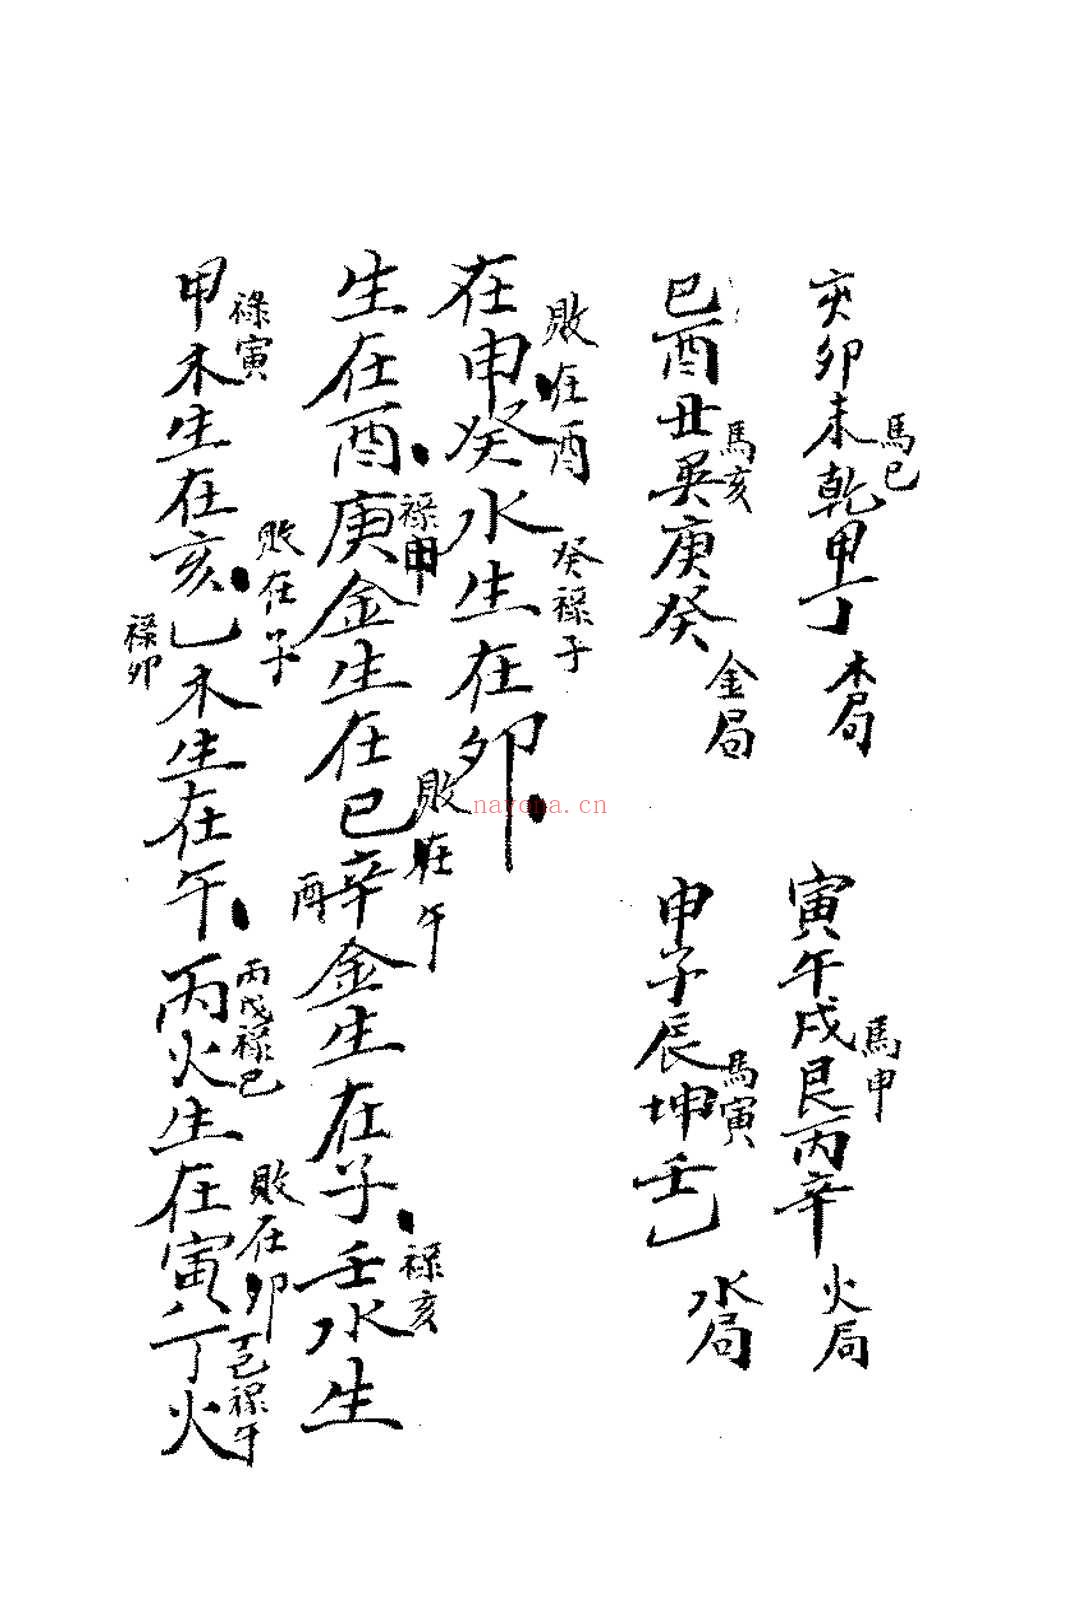 甲木生在亥乙木生在午丙火生在寅丁火
禄寅
禄卯
敗在子
丙戊禄巳
敗在卯
丁己禄午
生在酉庚金生在巳辛金生在子壬水生
禄申
敗在午
酉
禄亥
在申癸水生在卯
敗在酉
癸禄子
巳酉丑巽庚癸
馬亥
金局
申子辰坤壬乙
馬寅
水局
亥卯未乾甲丁
馬巳
木局
寅午戌艮丙辛
馬申
火局
nayona.cn